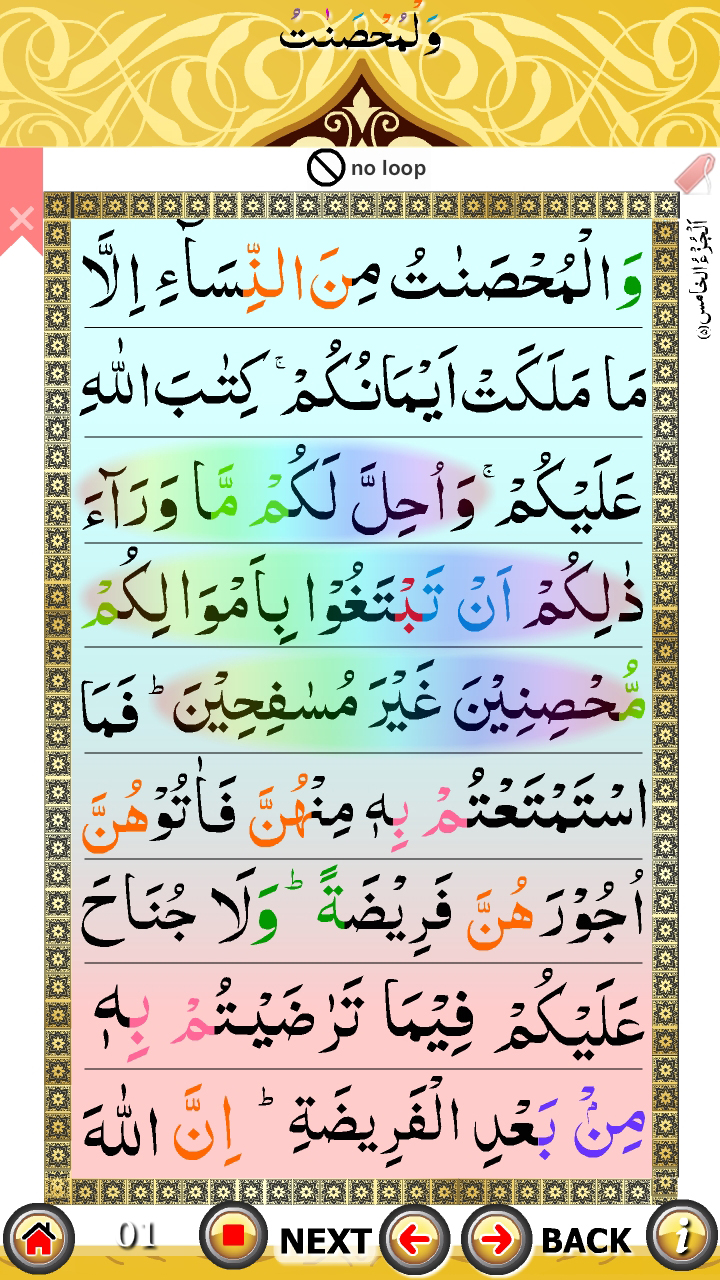 وَلْمُحْصَنٰتُ
no loop
اَلْجُزْءُ الْخَامِس (۵)
وَالْمُحْصَنٰتُ مِنَ النِّسَآءِ اِلَّا
مَا مَلَكَتْ اَيْمَانُكُمْ ۚ كِتٰبَ اللّٰهِ
عَلَيْكُمْ ۚ وَاُحِلَّ لَكُمْ مَّا وَرَآءَ
ذٰلِكُمْ اَنْ تَبْتَغُوْا بِاَمْوَالِكُمْ
مُّحْصِنِيْنَ غَيْرَ مُسٰفِحِيْنَ ؕ فَمَا
اسْتَمْتَعْتُمْ بِهٖ مِنْهُنَّ فَاٰتُوْهُنَّ
اُجُوْرَهُنَّ فَرِيْضَةً ؕ وَلَا جُنَاحَ
عَلَيْكُمْ فِيْمَا تَرٰضَيْتُمْ بِهٖ
مِنْۢ بَعْدِ الْفَرِيْضَةِ ؕ اِنَّ اللّٰهَ
01 NEXT BACK i